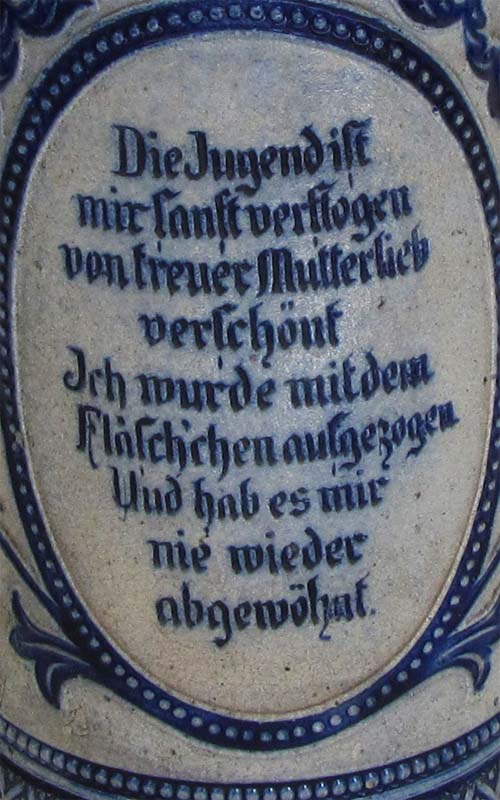 Die Jugend ist
mir sanft verflogen
von treuer Mutterlieb
verschönt
Ich wurde mit dem
Fläschchen aufgezogen
Und hab es mir
nie wieder
abgewöhnt.